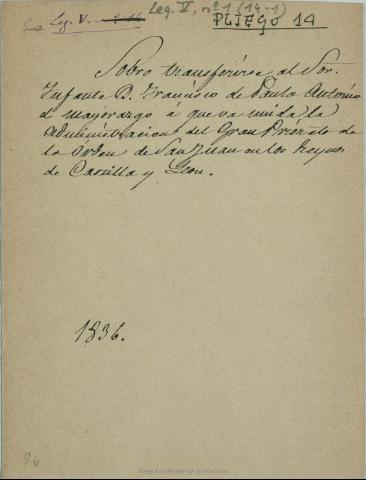 Leg. V, nº 1 (14-1)
Leg. V.
PLIEGO 14
Sobre transferirse al Sor.
Infante D. Francisco de Paula Antonio
el mayorazgo á que va unida la
Administracion del Gran Priorato de
la Orden de San Juan en los Reynos
de Castilla y Leon.
1836.
Real Academia de la Historia